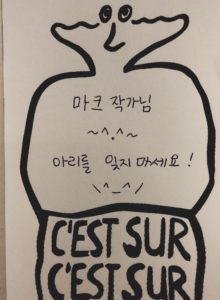 마크 작가님
~^.^~
아리를 잊지 마세요!
\^_^/
C'EST SUR
C'EST SUR